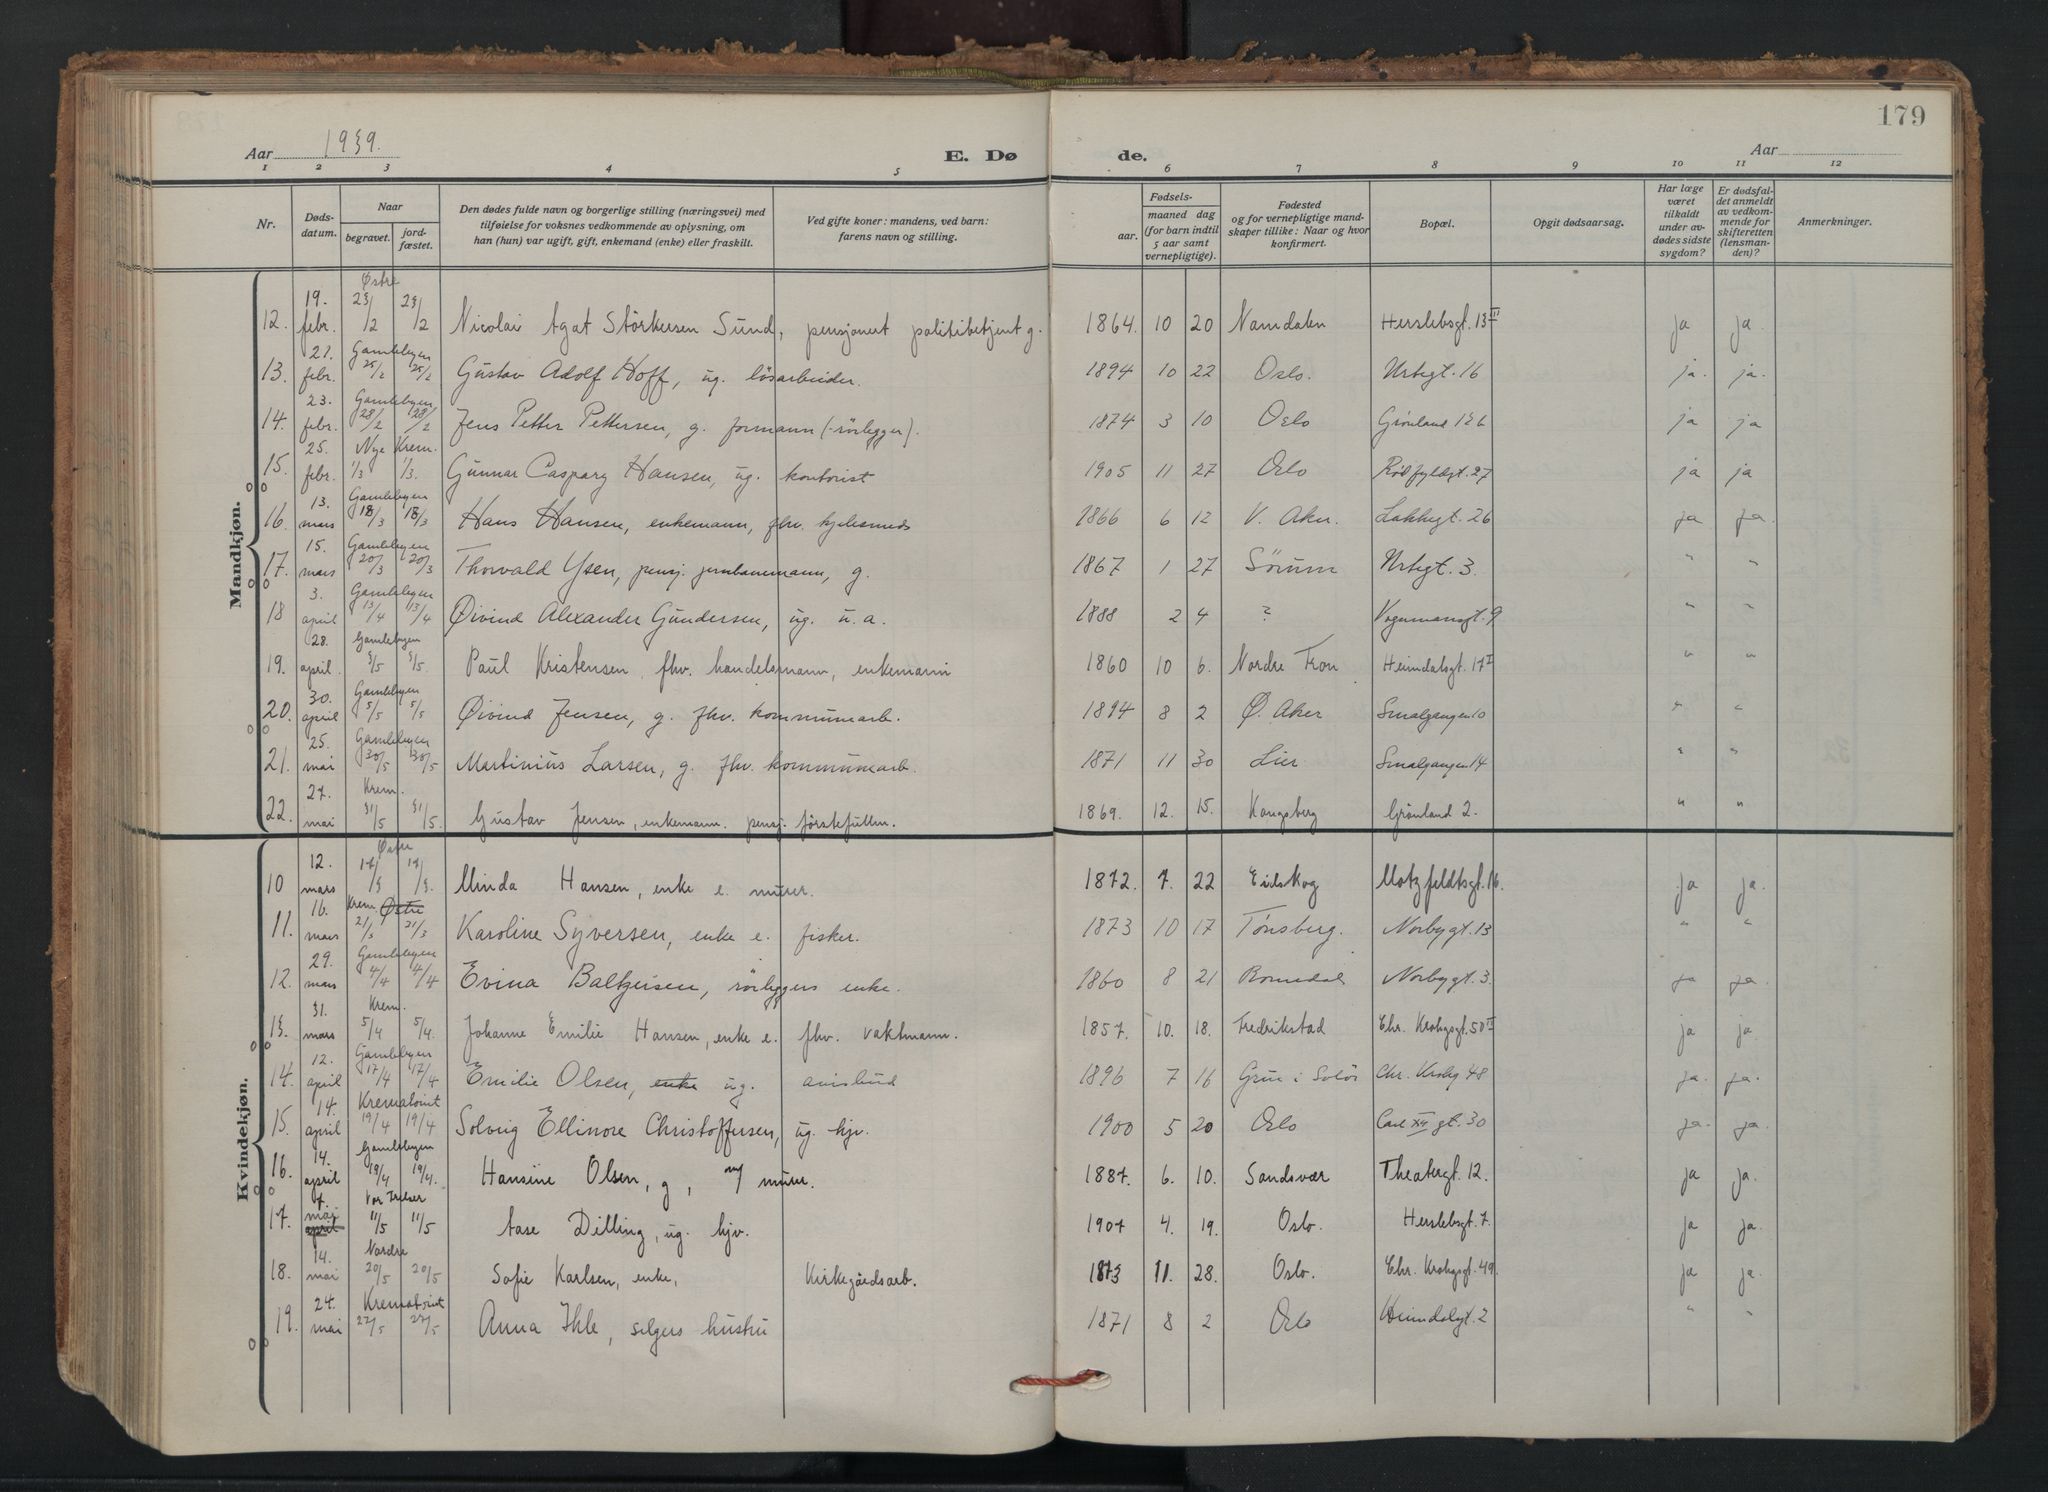 179
Aar 1939.
E. Dø de.
Aar
1 2 3 4 5 6 7 8 9 10 11 12
Nr.
Døds-
datum.
Naar
begravet.
jord-
fæstet.
Den dødes fulde navn og borgerlige stilling (næringsvei) med
tilføielse for voksnes vedkommende av oplysning, om
han (hun) var ugift, gift, enkemand (enke) eller fraskilt.
Ved gifte koner: mandens, ved barn:
farens navn og stilling.
Fødsels-
aar.
maaned dag
(for barn indtil
5 aar samt
vernepligtige).
Fødested
og for vernepligtige mand-
skaper tillike: Naar og hvor
konfirmert.
Bopæl.
Opgit dødsaarsag.
Har læge
været
tilkaldt
under av-
dødes sidste
sygdom?
Er dødsfal-
det anmeldt
av vedkom-
mende for
skifteretten
(lensman-
den)?
Anmerkninger.
Mandkjøn.
Østre
12. 19. febr. 23/2 23/2 Nicolai Agat Störkersen Sund, pensjonert politibetjent g. 1864. 10 20 Namdalen Herslebsgt. 13 III ja ja.
Gamlebyen
13. 21. febr. 25/2 25/2 Gustav Adolf Hoff, ug. løsarbeider. 1894 10 22 Oslo. Urtegt. 16 ja. ja.
Gamlebyen
14. 23. febr. 28/2 28/2 Jens Petter Pettersen, g. formann (rörlegger). 1874 3 10 Oslo Grønland 126 ja ja
Nye Krem.
15. 25. febr. 1/3 1/3. Gunnar Caspary Hansen, ug. kontorist 1905 11 27 Oslo Rødfyldgt. 27 ja ja
Gamlebyen
16. 13. mars 18/3 18/3 Hans Hansen, enkemann, fhv. kjelesmed 1866 6 12 V. Aker. Lakkegt. 26 ja ja.
Gamlebyen
17. 15. mars 20/3 20/3 Thorvald Ysen, pensj. jernbanemann, g. 1867 1 27 Sörum Urtegt. 3. " "
Gamlebyen
18 3. april 13/4 13/4 Øivind Alexander Gundersen, ug. u.a. 1888 2 4 ? Vognmannsgt. 9 " "
Gamlebyen
19. 28. april. 3/5 3/5. Paul Kristensen, fhv. handelsmann, enkemann 1860 10 6. Nordre Fron Heimdalsgt. 17 I " "
Gamlebyen
20. 30. april 5/5 5/5 Øivind Jensen, g. fhv. kommunearb. 1894 8 2 Ø. Aker Smalgangen 10 " "
Gamlebyen
21. 25. mai 30/5 30/5 Martinius Larsen, g. fhv. kommunearb. 1871 11 30 Lier Smalgangen 14 " "
Krem.
22. 27. mai 31/5 31/5. Gustav Jensen, enkemann. pensj. förstefullm. 1869. 12. 15. Kongsberg Grönland 2. " "
Kvindekjøn.
Østre
10 12. mars 17/3 17/3. Minda Hansen, enke e. murer. 1872. 7. 22 Eidskog Motzfeldtsgt. 16. ja ja.
Krem. Østre
11. 16. mars 21/3 21/3 Karoline Syversen, enke e. fisker. 1873 10 17 Tønsberg. Norbygt. 13 " "
Gamlebyen
12. 29. mars 4/4 4/4 Evina Baltzersen, rörleggers enke. 1860 8 21 Romedal Norbygt. 3. ja ja.
Krem.
13. 31. mars 5/4 5/4. Johanne Emilie Hansen, enke e. fhv. vaktmann. 1857. 10. 18. Fredrikstad Chr. Krohgsgt. 50 II ja ja.
Gamlebyen
14. 12. april 17/4 17/4 Emilie Olsen, enke ug. avisbud 1896 7 16 Grue i Solör Chr. Krohg 48 ja. ja.
Krematoriet
15. 14. april 19/4 19/4 Solveig Ellinore Christoffersen, ug. hjv. 1900 5 20 Oslo Carl XII gt. 30 ja. ja.
Gamlebyen
16. 14. april 19/4 19/4. Hansine Olsen, g, m/ murer. 1887. 6. 10. Sandsvær Theatergt. 12. ja ja.
Vor Frelser
17. 7. mai april 11/5 11/5 Aase Dilling, ug. hjv. 1907 4. 19. Oslo. Herslebsgt. 7. ja ja.
Nordre
18. 14. mai 20/5 20/5 Sofie Karlsen, enke, Kirkegårdsarb. 1873 11. 28. Oslo. Chr. Krohgsgt. 49. ja ja.
Krematoriet
19. 24. mai 27/5 27/5 Anna Ihle, selgers hustru 1871 8 2 Oslo Heimdalsgt. 2 " "